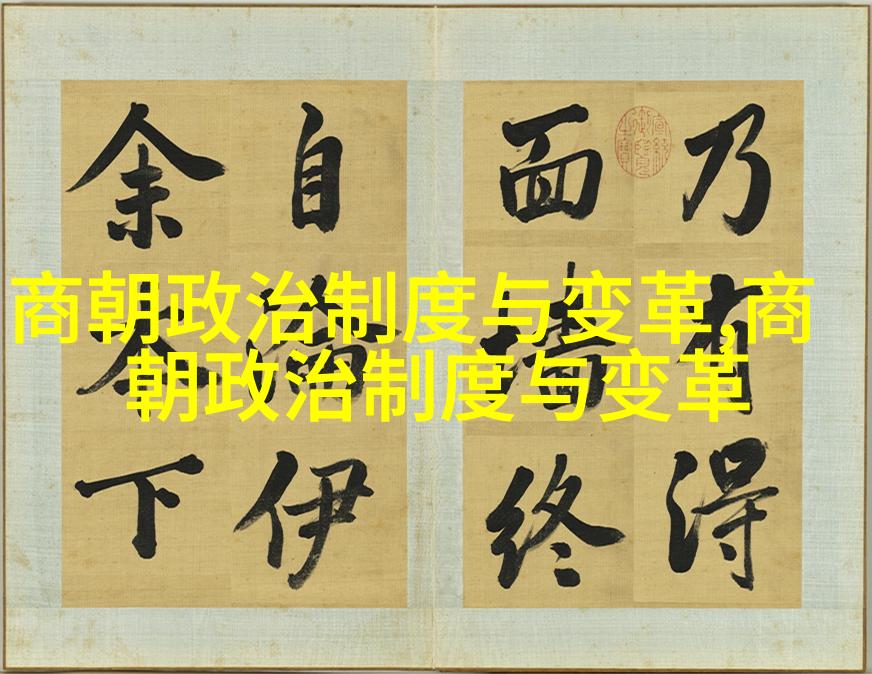 商朝政治制度与变革,商
朝政治制度与变革
乃有得
面墙终
自伊
余下